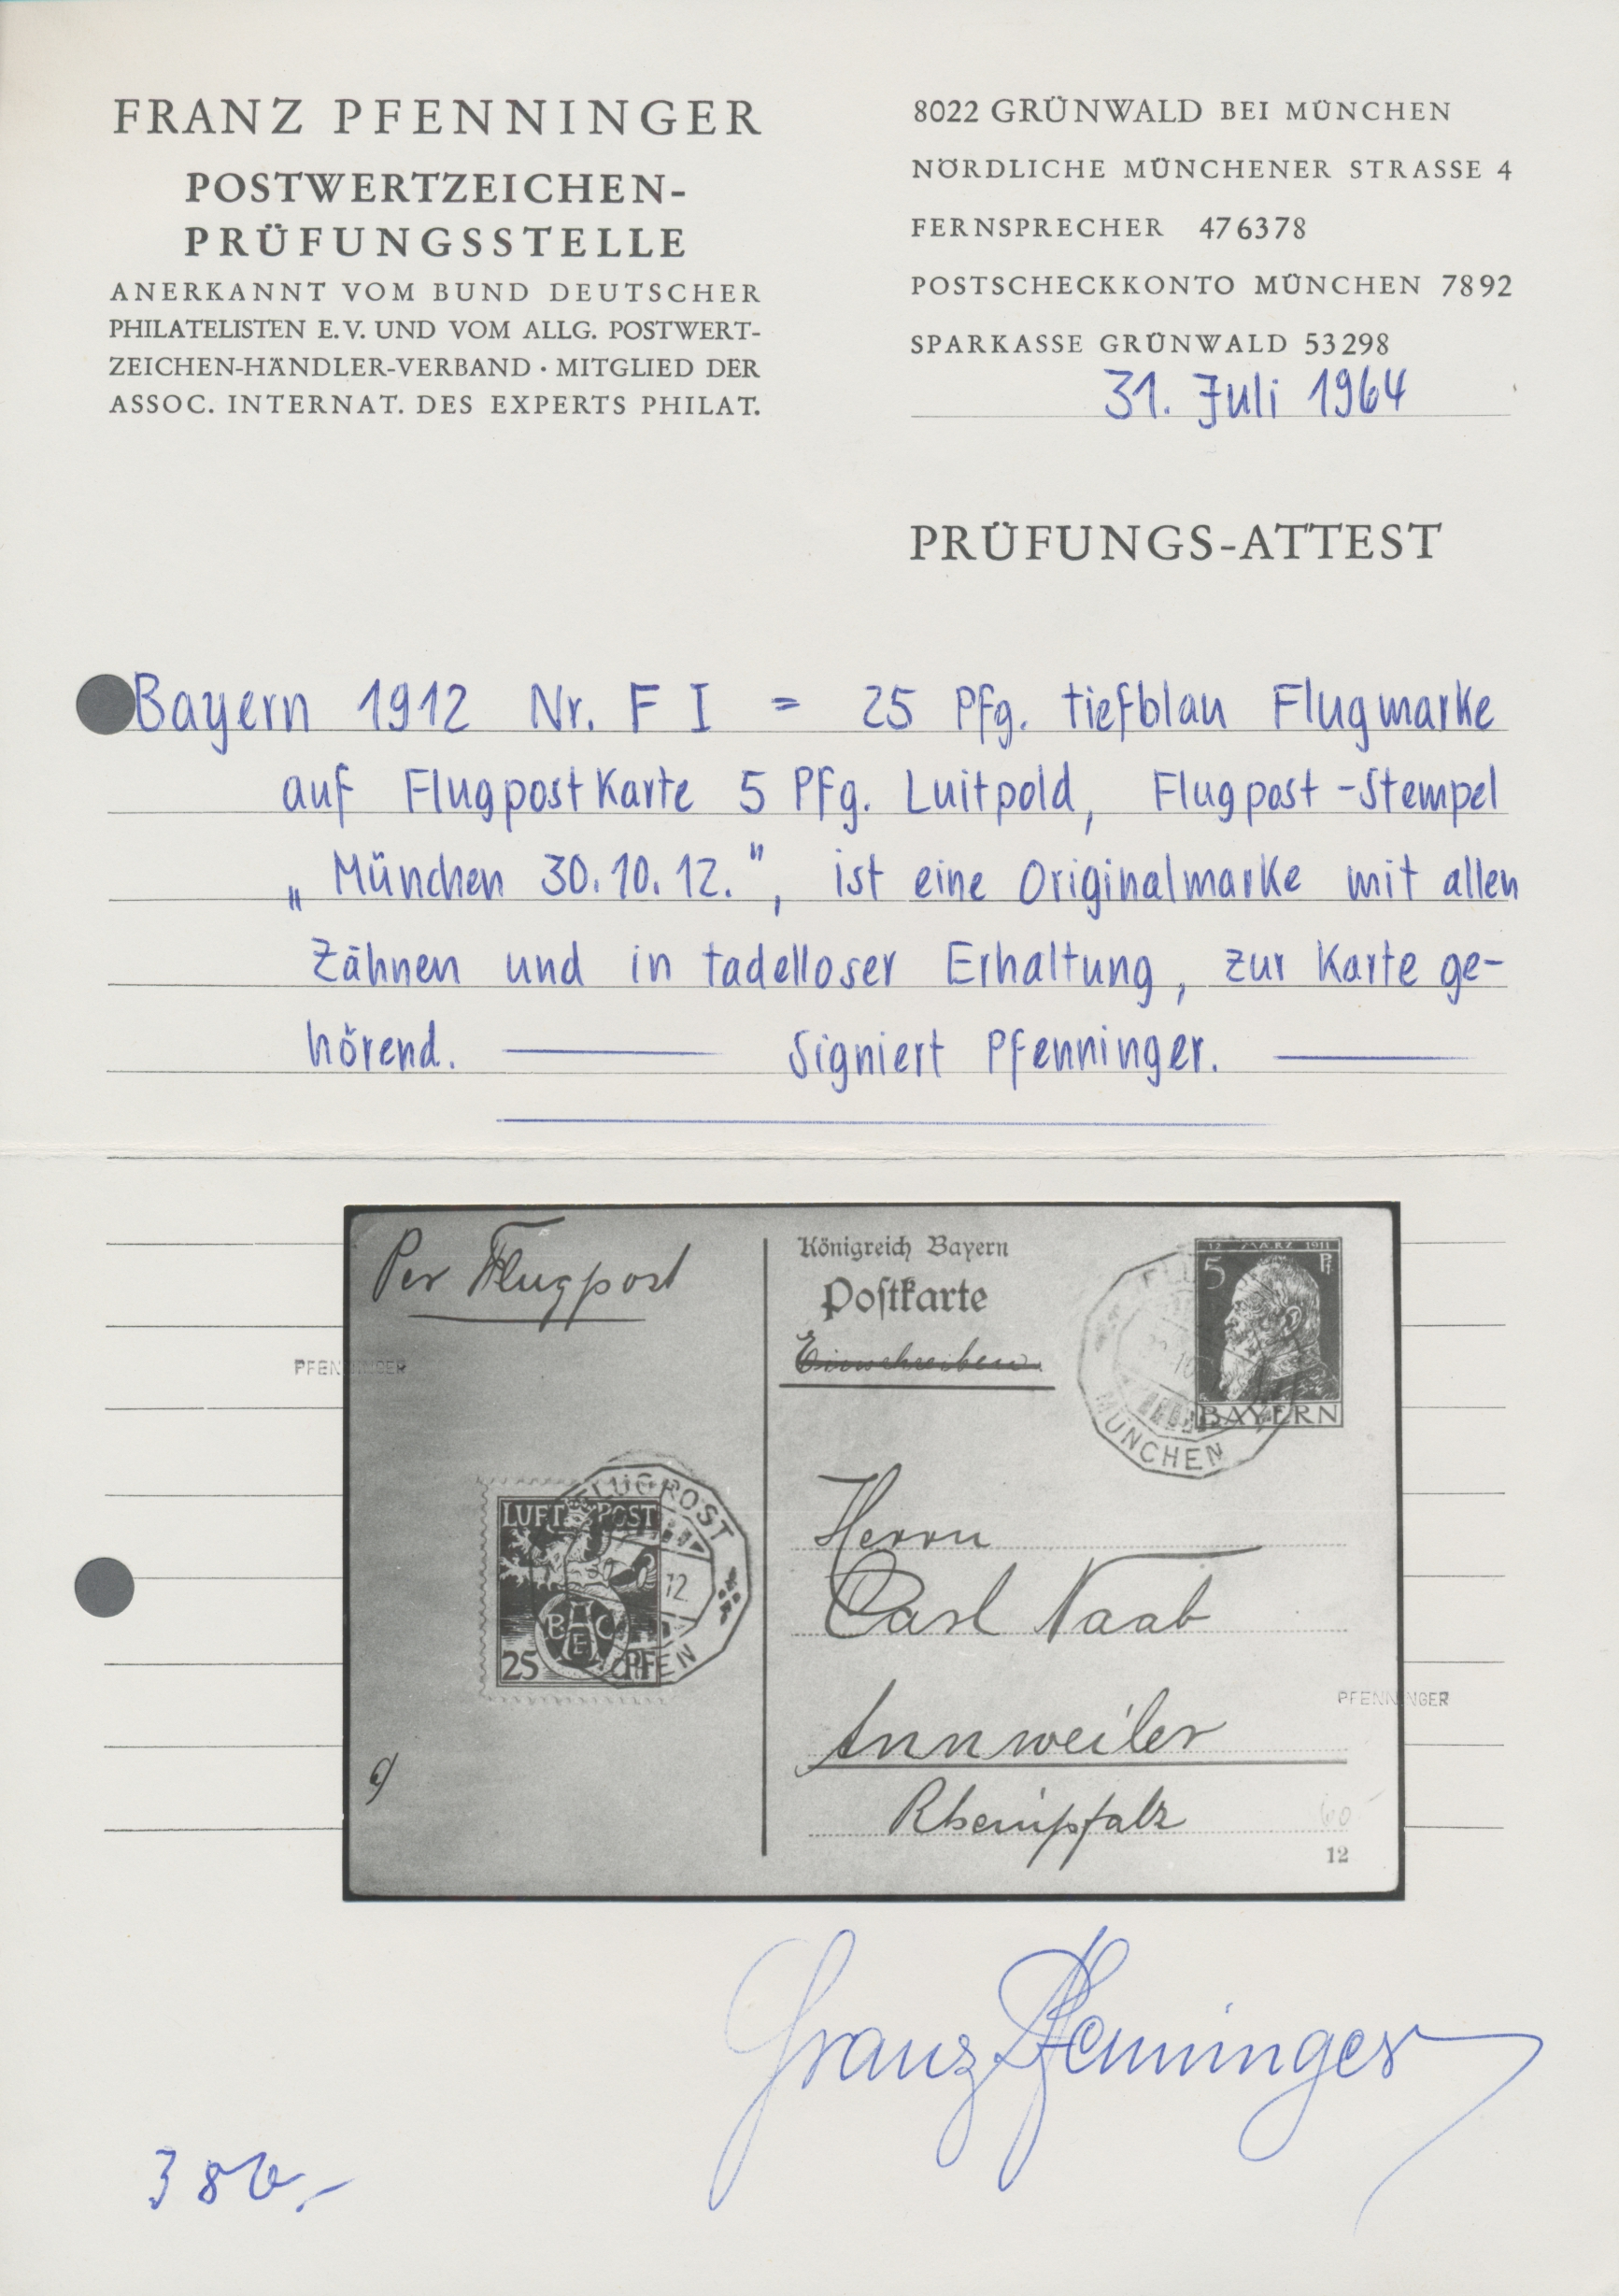 FRANZ PFENNINGER
POSTWERTZEICHEN-
PRÜFUNGSSTELLE
ANERKANNT VOM BUND DEUTSCHER
PHILATELISTEN E.V. UND VOM ALLG. POSTWERT-
ZEICHEN-HÄNDLER-VERBAND · MITGLIED DER
ASSOC. INTERNAT. DES EXPERTS PHILAT.
8022 GRÜNWALD BEI MÜNCHEN
NÖRDLICHE MÜNCHENER STRASSE 4
FERNSPRECHER 476378
POSTSCHECKKONTO MÜNCHEN 7892
SPARKASSE GRÜNWALD 53298
31. Juli 1964
PRÜFUNGS-ATTEST
Bayern 1912 Nr. F I = 25 Pfg. tiefblau Flugmarke
auf Flugpostkarte 5 Pfg. Luitpold, Flugpost-Stempel
„München 30.10.12.", ist eine Originalmarke mit allen
Zähnen und in tadelloser Erhaltung, zur Karte ge-
hörend. Signiert Pfenninger.
Per Flugpost
Königreich Bayern
Postkarte
Einschreiben
12 MÄRZ 1911
5 Pf
BAYERN
MÜNCHEN
PFENNINGER
LUFT POST
BAEC
25 PF
FLUGPOST
12
Herrn
Carl Naab
Annweiler
Rheinpfalz
PFENNINGER
12
Franz Pfenninger